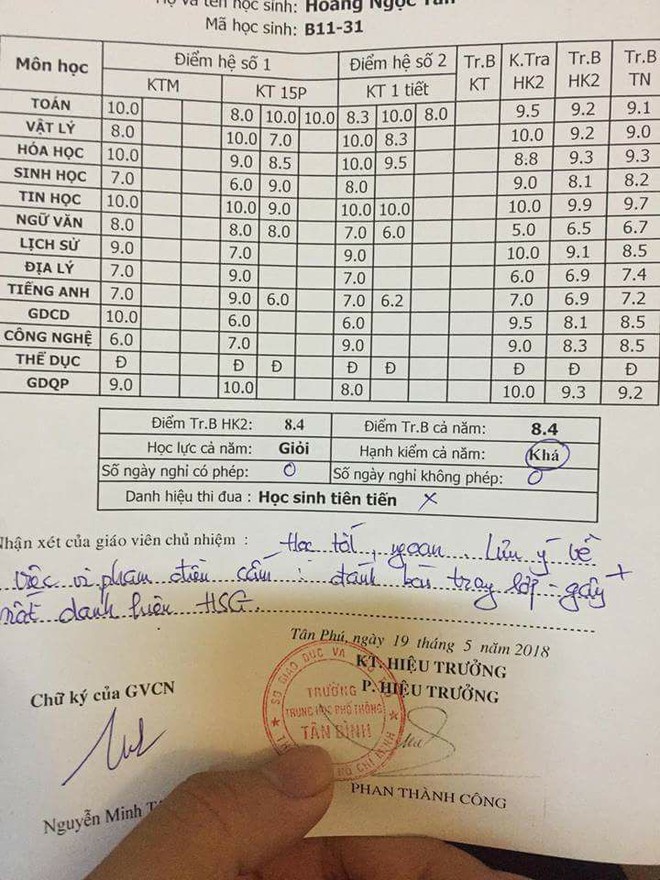 Họ và tên học sinh: Hoàng Ngọc
Mã học sinh: B11-31
Môn học Điểm hệ số 1 Điểm hệ số 2 Tr.B KT K.Tra HK2 Tr.B HK2 Tr.B TN
KTM KT 15P KT 1 tiết
TOÁN 10.0 8.0 10.0 10.0 8.3 10.0 8.0 9.5 9.2 9.1
VẬT LÝ 8.0 10.0 7.0 10.0 8.3 10.0 9.2 9.0
HÓA HỌC 10.0 9.0 8.5 10.0 9.5 8.8 9.3 9.3
SINH HỌC 7.0 6.0 9.0 8.0 9.0 8.1 8.2
TIN HỌC 10.0 10.0 9.0 10.0 10.0 10.0 9.9 9.7
NGỮ VĂN 8.0 8.0 8.0 7.0 6.0 5.0 6.5 6.7
LỊCH SỬ 9.0 7.0 9.0 10.0 9.1 8.5
ĐỊA LÝ 7.0 9.0 7.0 6.0 6.9 7.4
TIẾNG ANH 7.0 9.0 6.0 7.0 6.2 7.0 6.9 7.2
GDCD 10.0 6.0 6.0 9.5 8.1 8.5
CÔNG NGHỆ 6.0 7.0 9.0 9.0 8.3 8.5
THỂ DỤC Đ Đ Đ Đ Đ Đ Đ Đ
GDQP 9.0 10.0 8.0 10.0 9.3 9.2
Điểm Tr.B HK2: 8.4 Điểm Tr.B cả năm: 8.4
Học lực cả năm: Giỏi Hạnh kiểm cả năm: Khá
Số ngày nghỉ có phép: 0 Số ngày nghỉ không phép: 0
Danh hiệu thi đua : Học sinh tiên tiến x
Nhận xét của giáo viên chủ nhiệm : Học tốt, ngoan. Lưu ý về
việc vi phạm điều cấm : đánh bài trong lớp - gây
mất danh hiệu HSG.
Tân Phú, ngày 19 tháng 5 năm 2018
KT. HIỆU TRƯỞNG
P. HIỆU TRƯỞNG
Chữ ký của GVCN
SỞ GIÁO DỤC VÀ
TRƯỜNG
TRUNG HỌC PHỔ THÔNG
TÂN BÌNH
HỒ CHÍ MINH
PHAN THÀNH CÔNG
Nguyễn Minh